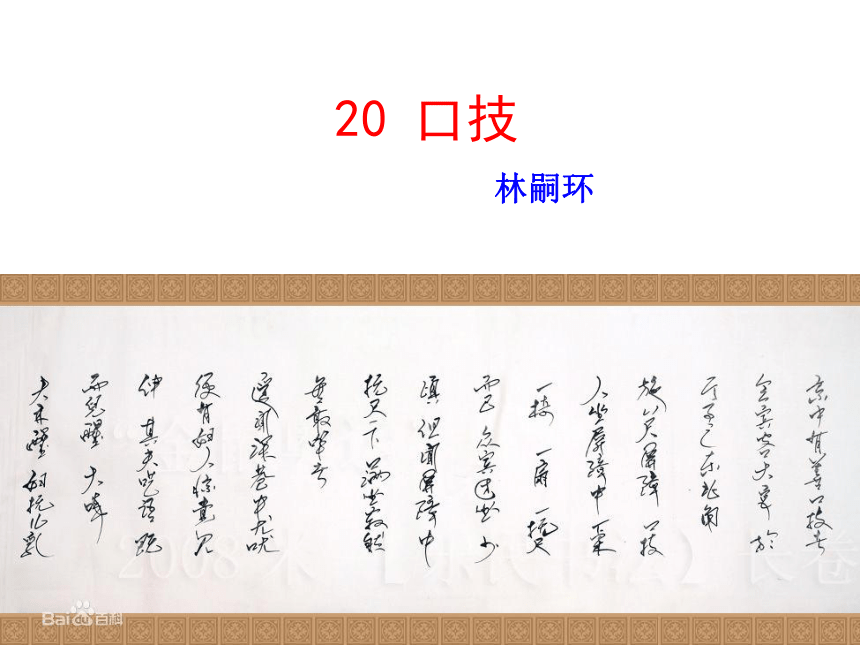 20 口技
林嗣环
京中有善口技者
会宾客大宴 於
厅事之东北角
施八尺屏障 口技
人坐屏障中 一桌
一椅 一扇 一抚尺
而已 众宾团坐 少
顷 但闻屏障中
抚尺一下 满坐寂然
無敢哗者
遥闻深巷中犬吠
便有妇人惊觉欠
伸 其夫呓语 既
而儿醒 大啼
夫亦醒 妇抚儿乳
2008 米 长卷
Baidu百科